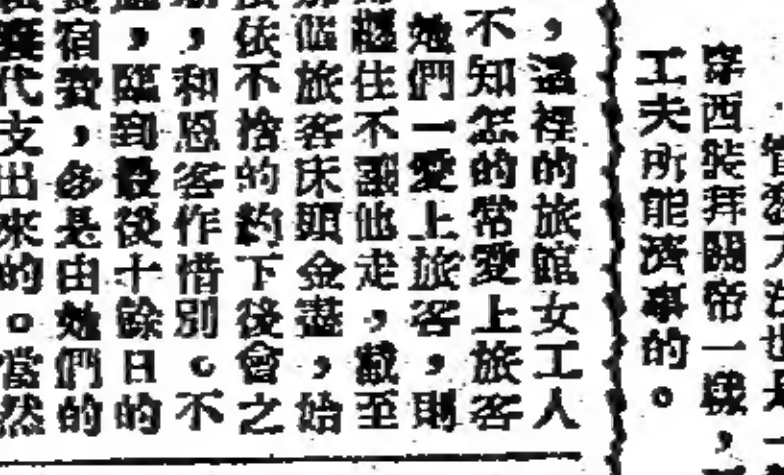 穿西裝拜關帝一樣，
工夫所能濟事的。
，這裡的旅館女工人
不知怎的常愛上旅客
她們一愛上旅客，則
纏住不讓他走，甚至
旅客床頭金盡，始
依不捨的約下後會之
，和恩客作惜別。不
，臨到最後十餘日的
宿費，多是由她們的
代支出來的。當然